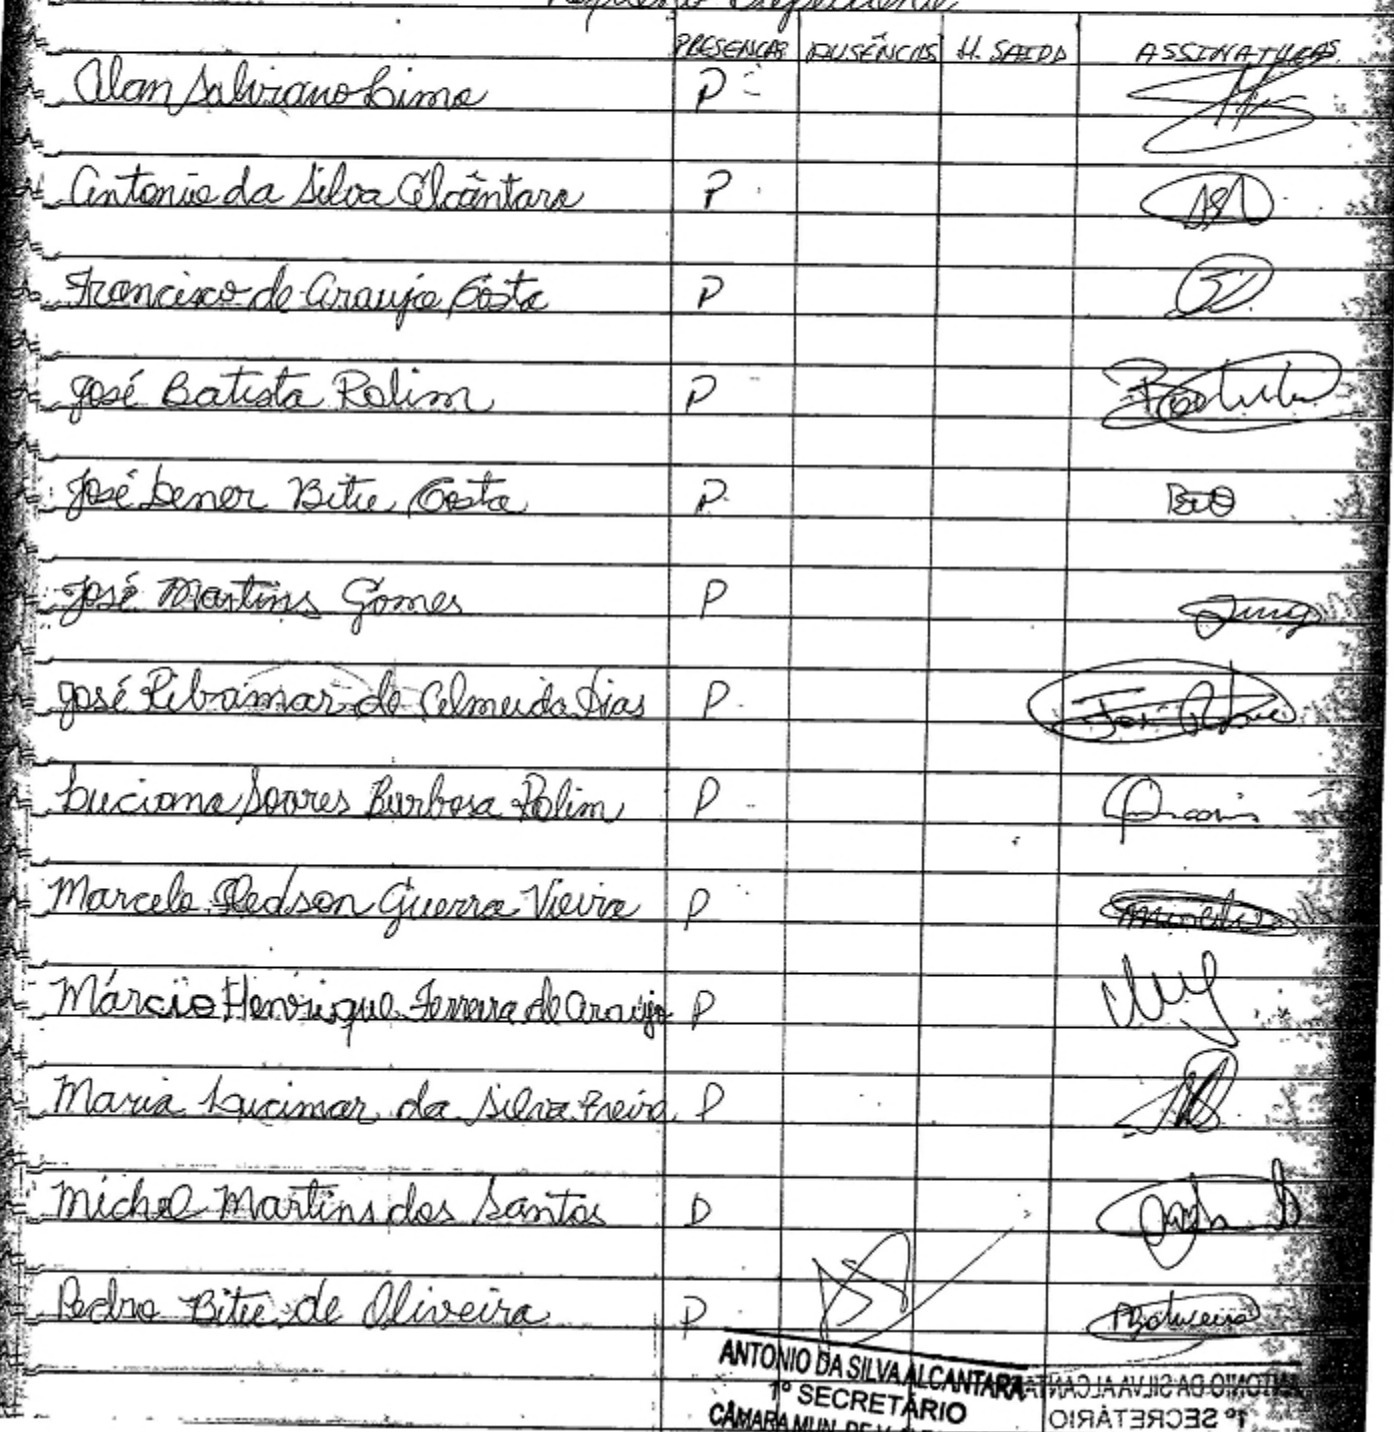 Pequeno Expediente
PRESENÇAS AUSÊNCIAS H. SAÍDA ASSINATURAS
Alan Salviano Lima P
Antonio da Silva Alcântara P
Francisco de Araujo Costa P
José Batista Rolim P Batista
José Lener Bitu Costa P
José Martins Gomes P
José Ribamar de Almeida Dias P José
Luciana Soares Barbosa Rolim P
Marcelo Gledson Guerra Vieira P Marcelo
Márcio Henrique Ferreira de Araújo P
Maria Lucimar da Silva Freire P
Michel Martins dos Santos P
Pedro Bitu de Oliveira P PBOliveira
ANTONIO DA SILVA ALCANTARA
1º SECRETÁRIO
CÂMARA MUN. DE
ANTONIO DA SILVA ALCANTA
1º SECRETÁRIO